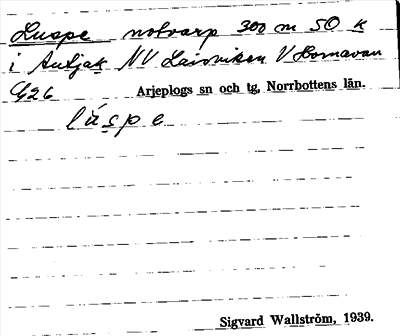 Luspe notvarp 300 m SO k
i Autjak NV Laisviken V Hornavan
G26 Arjeplogs sn och tg, Norrbottens län.
láspe
Sigvard Wallström, 1939.